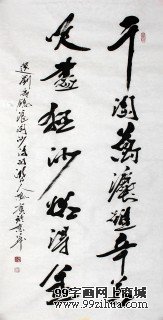 千淘萬漉雖辛苦
吹盡狂沙始得金
選劉禹錫浪淘沙
99字画网上商城
www.99zihua.com